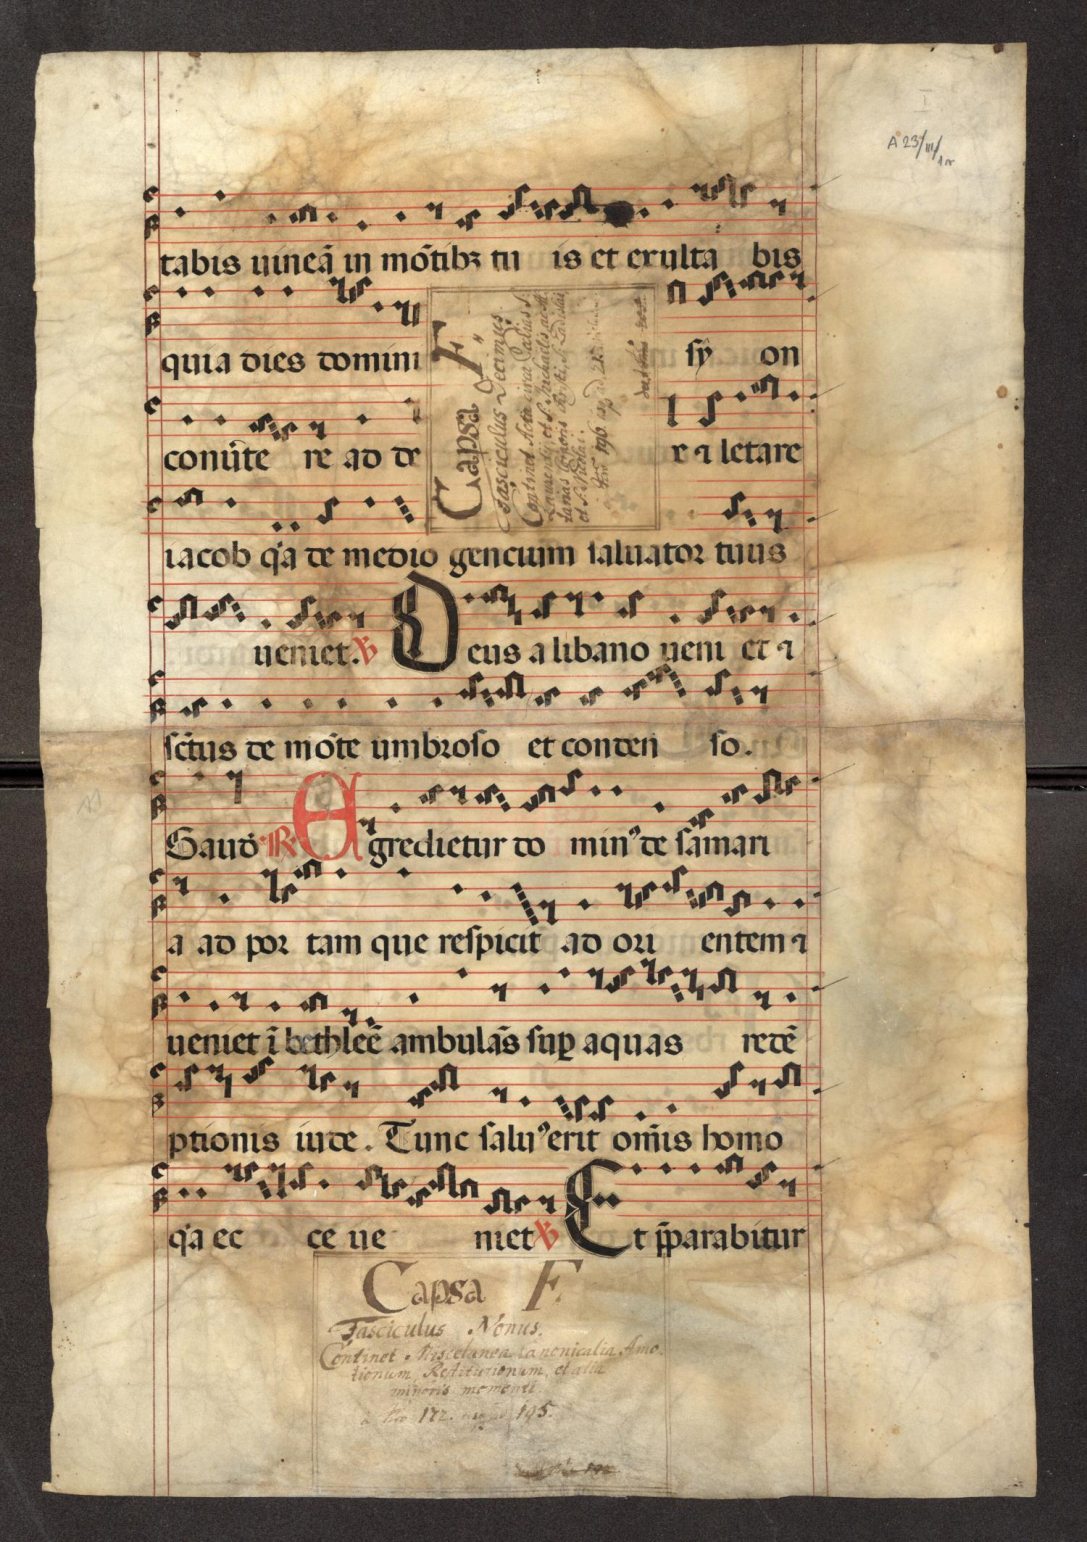 A 23/III/1r
tabis uineã in mõtibꝫ tu is et exulta bis
quia dies domini sy on
conu̾te re ad de r ⁊ letare
iacob qͣa de medio gencium saluator tuus
ueniet. ℣ Deus a libano ueni et ⁊
sc̃tus de mõte umbroso et conden so.
Gaud̾ ℟ Egredietur do minꝰ de samari
a ad por tam que respicit ad ori entem ⁊
ueniet ĩ bethleẽ ambulãs suꝑ aquas redẽ
ptionis iude. Tunc saluꝰerit om̃is homo
qͣa ec ce ue niet ℣ Et p̃parabitur
Capsa F
Fasciculus Decimus.
Continet Acta circa
Capsa F
Fasciculus Nonus.
Continet Miscelanea Canonicalia Amo
tionum, Restitutionum, et alia
minoris momenti
172. 195.